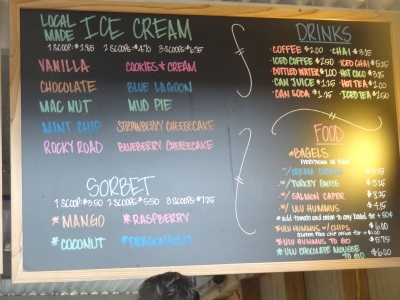 LOCAL MADE ICE CREAM
1 SCOOP: $2.85 2 SCOOPS $4.70 3 SCOOPS $6.75
VANILLA COOKIES & CREAM
CHOCOLATE BLUE LAGOON
MAC NUT MUD PIE
MINT CHIP STRAWBERRY CHEESECAKE
ROCKY ROAD BLUEBERRY CHEESECAKE
SORBET
1 SCOOP: $3.50 2 SCOOPS $5.50 3 SCOOPS $7.25
* MANGO * RASPBERRY
* COCONUT * DRAGONFRUIT
DRINKS
• COFFEE $2.00 • CHAI $3.25
• ICED COFFEE $2.50 • ICED CHAI
• BOTTLED WATER $1.00 • HOT COCO $3.25
• CAN JUICE $1.75 • HOT TEA $2.00
• CAN SODA $1.75 • ICED TEA $2.50
FOOD
* BAGELS
EVERYTHING OR PLAIN
• W/ CREAM CHEESE
• W/ TURKEY SWISS
• W/ SALMON CAPER 8.25
• W/ ULU HUMMUS 4.75
* add tomato and onion to any bagel for + 50¢
* ULU HUMMUS W/ CHIPS $6.00
gluten free chip option for +
* ULU HUMMUS TO GO $5.75
* ULU CHOCOLATE MOUSSE TO GO $6.00